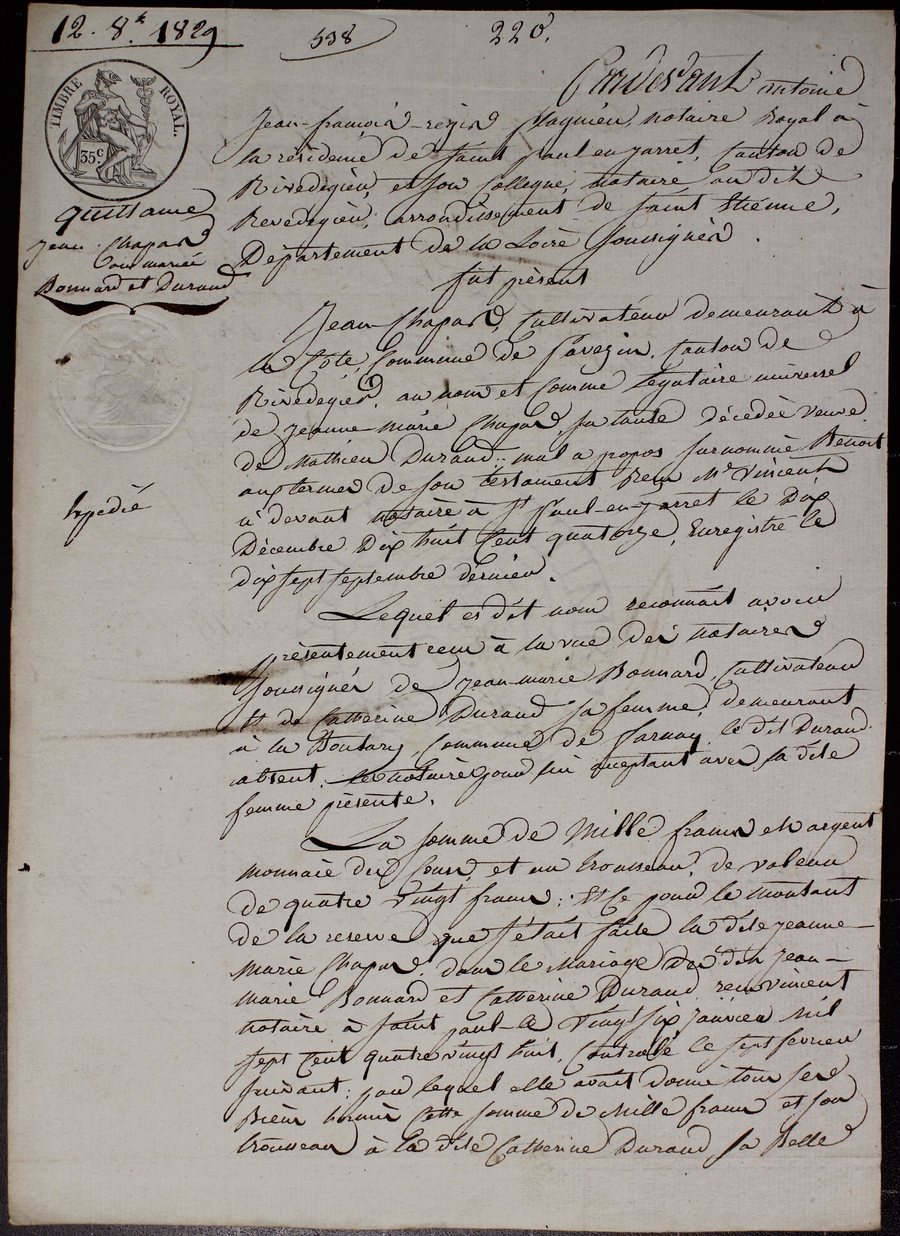 12. 8.re 1829
538
220.
TIMBRE ROYAL.
35c.
quittance
Jean Chapard
aux mariés
Bonnard et Durand
Expédié
Pardevant Antoine
Jean-françois-régis notaire Royal à
la résidence de Saint paul en jarret, Canton de
Rivedegier, et son Collegue, notaire au dit
Rivedegier, arrondissement de Saint Etienne,
Département de la Loire soussignés.
fut présent
Jean Chapard, Cultivateur demeurant à
la Côte, Commune de Canton de
Rivedegier, au nom et comme légataire universel
de Jeanne-marie Chapard, sa tante décédée veuve
de Mathieu Durand mal a propos surnommé Benoit
aux termes de son testament reçu Me Vincent
ci devant notaire à St Paul-en-jarret le Dix
Décembre Dix huit Cent quatorze, Enregistré le
dix sept septembre dernier.
Lequel es dit nom reconnait avoir
présentement reçu à la vue des notaires
soussignés de jean-marie Bonnard, Cultivateur
et de Catherine Durand sa femme, demeurant
à la Commune de farnay, le dit Durand
absent, le notaire pour lui acceptant avec sa dite
femme présente.
La somme de Mille francs en argent
monnaie du Cours, et un trousseau, de valeur
de quatre vingt francs; Et Ce pour le montant
de la reserve que s'était faite la dite jeanne-
marie Chapard, dans le Mariage des dits Jean-
marie Bonnard et Catherine Durand reçu vincent
notaire à saint paul le Vingt six janvier mil
sept Cent quatre vingt huit, Controlé le sept fevrier
suivant; par lequel elle avait donné tous ses
Biens hormis Cette somme de Mille francs et son
trousseau à la dite Catherine Durand, sa Belle